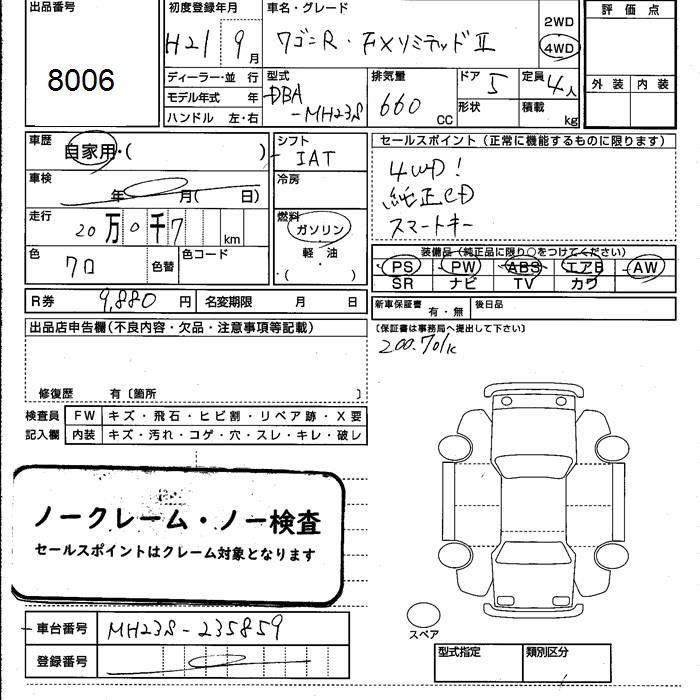 出品番号
8006
初度登録年月
H21 9月
車名・グレード
ワゴンR・FXリミテッドⅡ
2WD
4WD
評価点
外装 内装
ディーラー・並行
モデル年式 年
ハンドル 左・右
型式
DBA
-MH23S
排気量
660 CC
ドア 5
形状
定員 4人
積載 kg
車歴
自家用・( )
車検
年 月( 日)
走行
20万0千7 km
色
クロ
色替
色コード
シフト
IAT
冷房
燃料
ガソリン
軽・油
( )
セールスポイント (正常に機能するものに限ります)
4WD!
純正CD
スマートキー
装備品(純正品に限り○をつけてください)
PS PW ABS エアB AW
SR ナビ TV カワ
R券 9,880 円
名変期限 月 日
新車保証書 有・無
後日品
(保証書は事務局へ提出して下さい)
200.701K
出品店申告欄(不良内容・欠品・注意事項等記載)
修復歴 有〔箇所 〕
検査員 FW キズ・飛石・ヒビ割・リペア跡・X要
記入欄 内装 キズ・汚れ・コゲ・穴・スレ・キレ・破レ
ノークレーム・ノー検査
セールスポイントはクレーム対象となります
車台番号 MH23S-235859
登録番号
スペア
型式指定 類別区分